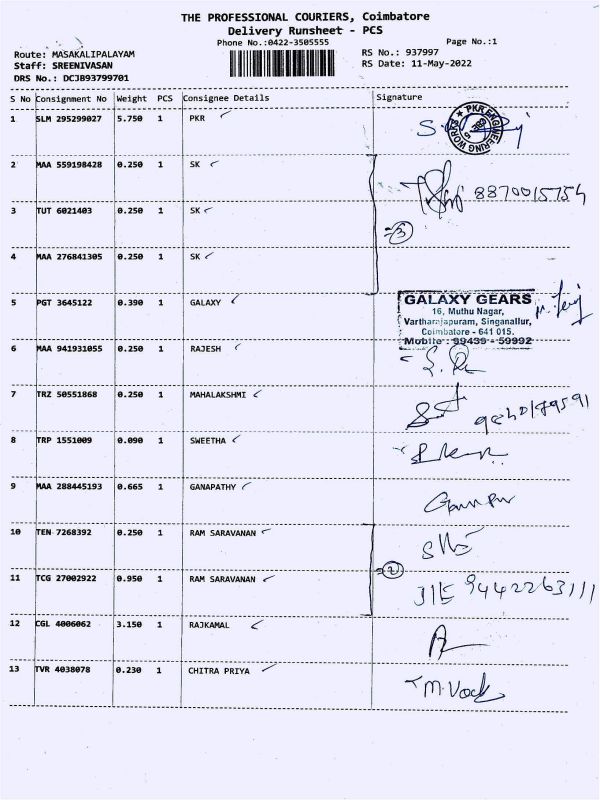 THE PROFESSIONAL COURIERS, Coimbatore
Delivery Runsheet - PCS
Phone No.:0422-3505555 Page No.:1
Route: MASAKALIPALAYAM RS No.: 937997
Staff: SREENIVASAN RS Date: 11-May-2022
DRS No.: DCJB93799701
S No Consignment No Weight PCS Consignee Details Signature
1 SLM 295299027 5.750 1 PKR
PKR ENGINEERING WORKS
2 MAA 559198428 0.250 1 SK 8870015754
3 TUT 6021403 0.250 1 SK
=3
4 MAA 276841305 0.250 1 SK
5 PGT 3645122 0.390 1 GALAXY
GALAXY GEARS
16, Muthu Nagar,
Vartharajapuram, Singanallur,
Coimbatore - 641 015.
Mobile : 99439 - 59992
6 MAA 941931055 0.250 1 RAJESH
7 TRZ 50551868 0.250 1 MAHALAKSHMI
8 TRP 1551009 0.090 1 SWEETHA
9 MAA 288445193 0.665 1 GANAPATHY
10 TEN 7268392 0.250 1 RAM SARAVANAN
=2
11 TCG 27002922 0.950 1 RAM SARAVANAN 9442263111
12 CGL 4006062 3.150 1 RAJKAMAL
13 TVR 4038078 0.230 1 CHITRA PRIYA